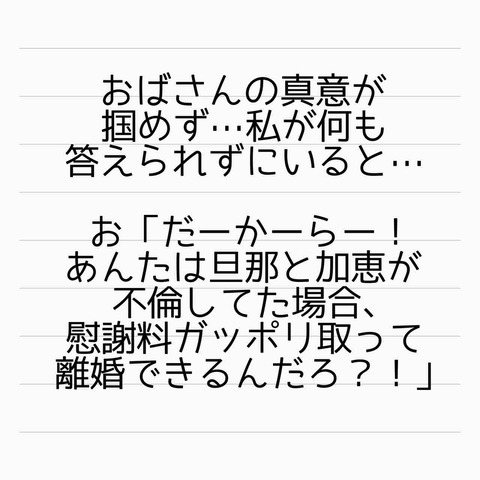 おばさんの真意が
掴めず…私が何も
答えられずにいると…
お「だーかーらー！
あんたは旦那と加恵が
不倫してた場合、
慰謝料ガッポリ取って
離婚できるんだろ？！」